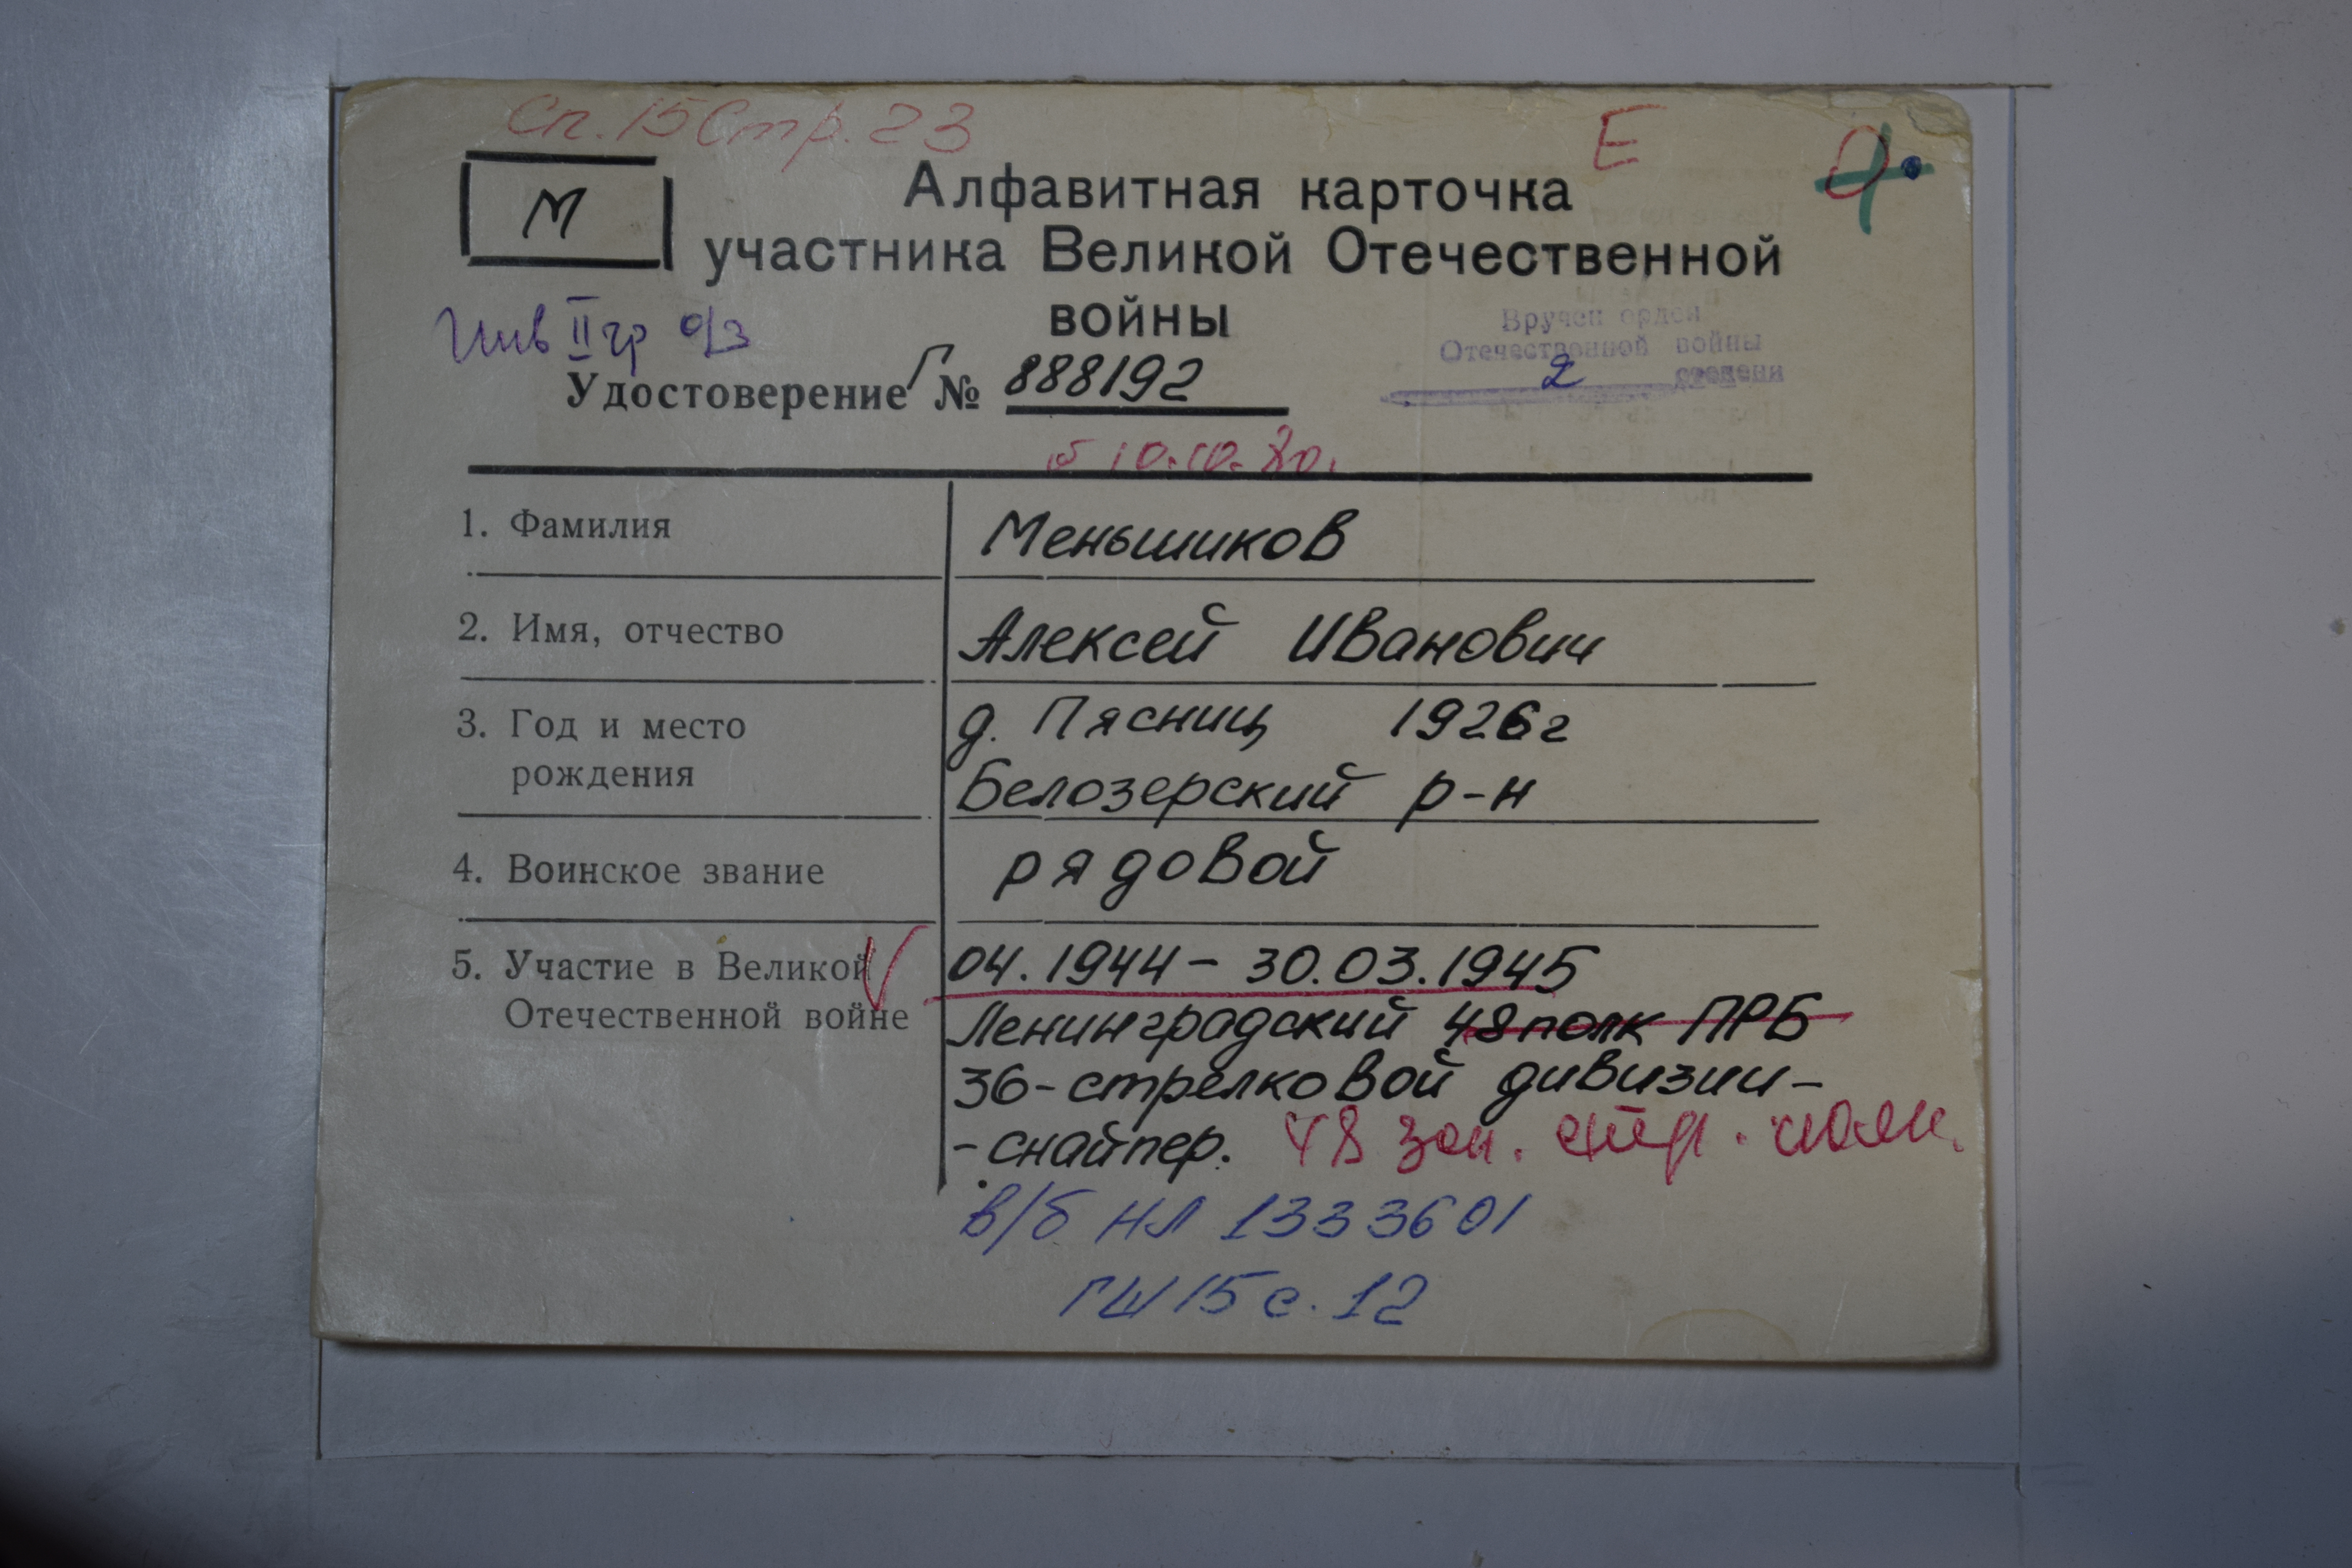 Сп. 15 Стр. 23
Е
М
Алфавитная карточка
участника Великой Отечественной
войны
Инв II гр о/з
Вручен орден
Отечественной войны
2 степени
Удостоверение Г № 888192
10.10.80.
1. Фамилия Меньшиков
2. Имя, отчество Алексей Иванович
3. Год и место д. Пясниц 1926г
рождения Белозерский р-н
4. Воинское звание рядовой
5. Участие в Великой 04.1944 - 30.03.1945
Отечественной войне Ленинградский 48 полк ПРБ
36-стрелковой дивизии -
- снайпер. 48 зап. стр. полк.
в/б НЛ 1333601
ГШ 15 с. 12